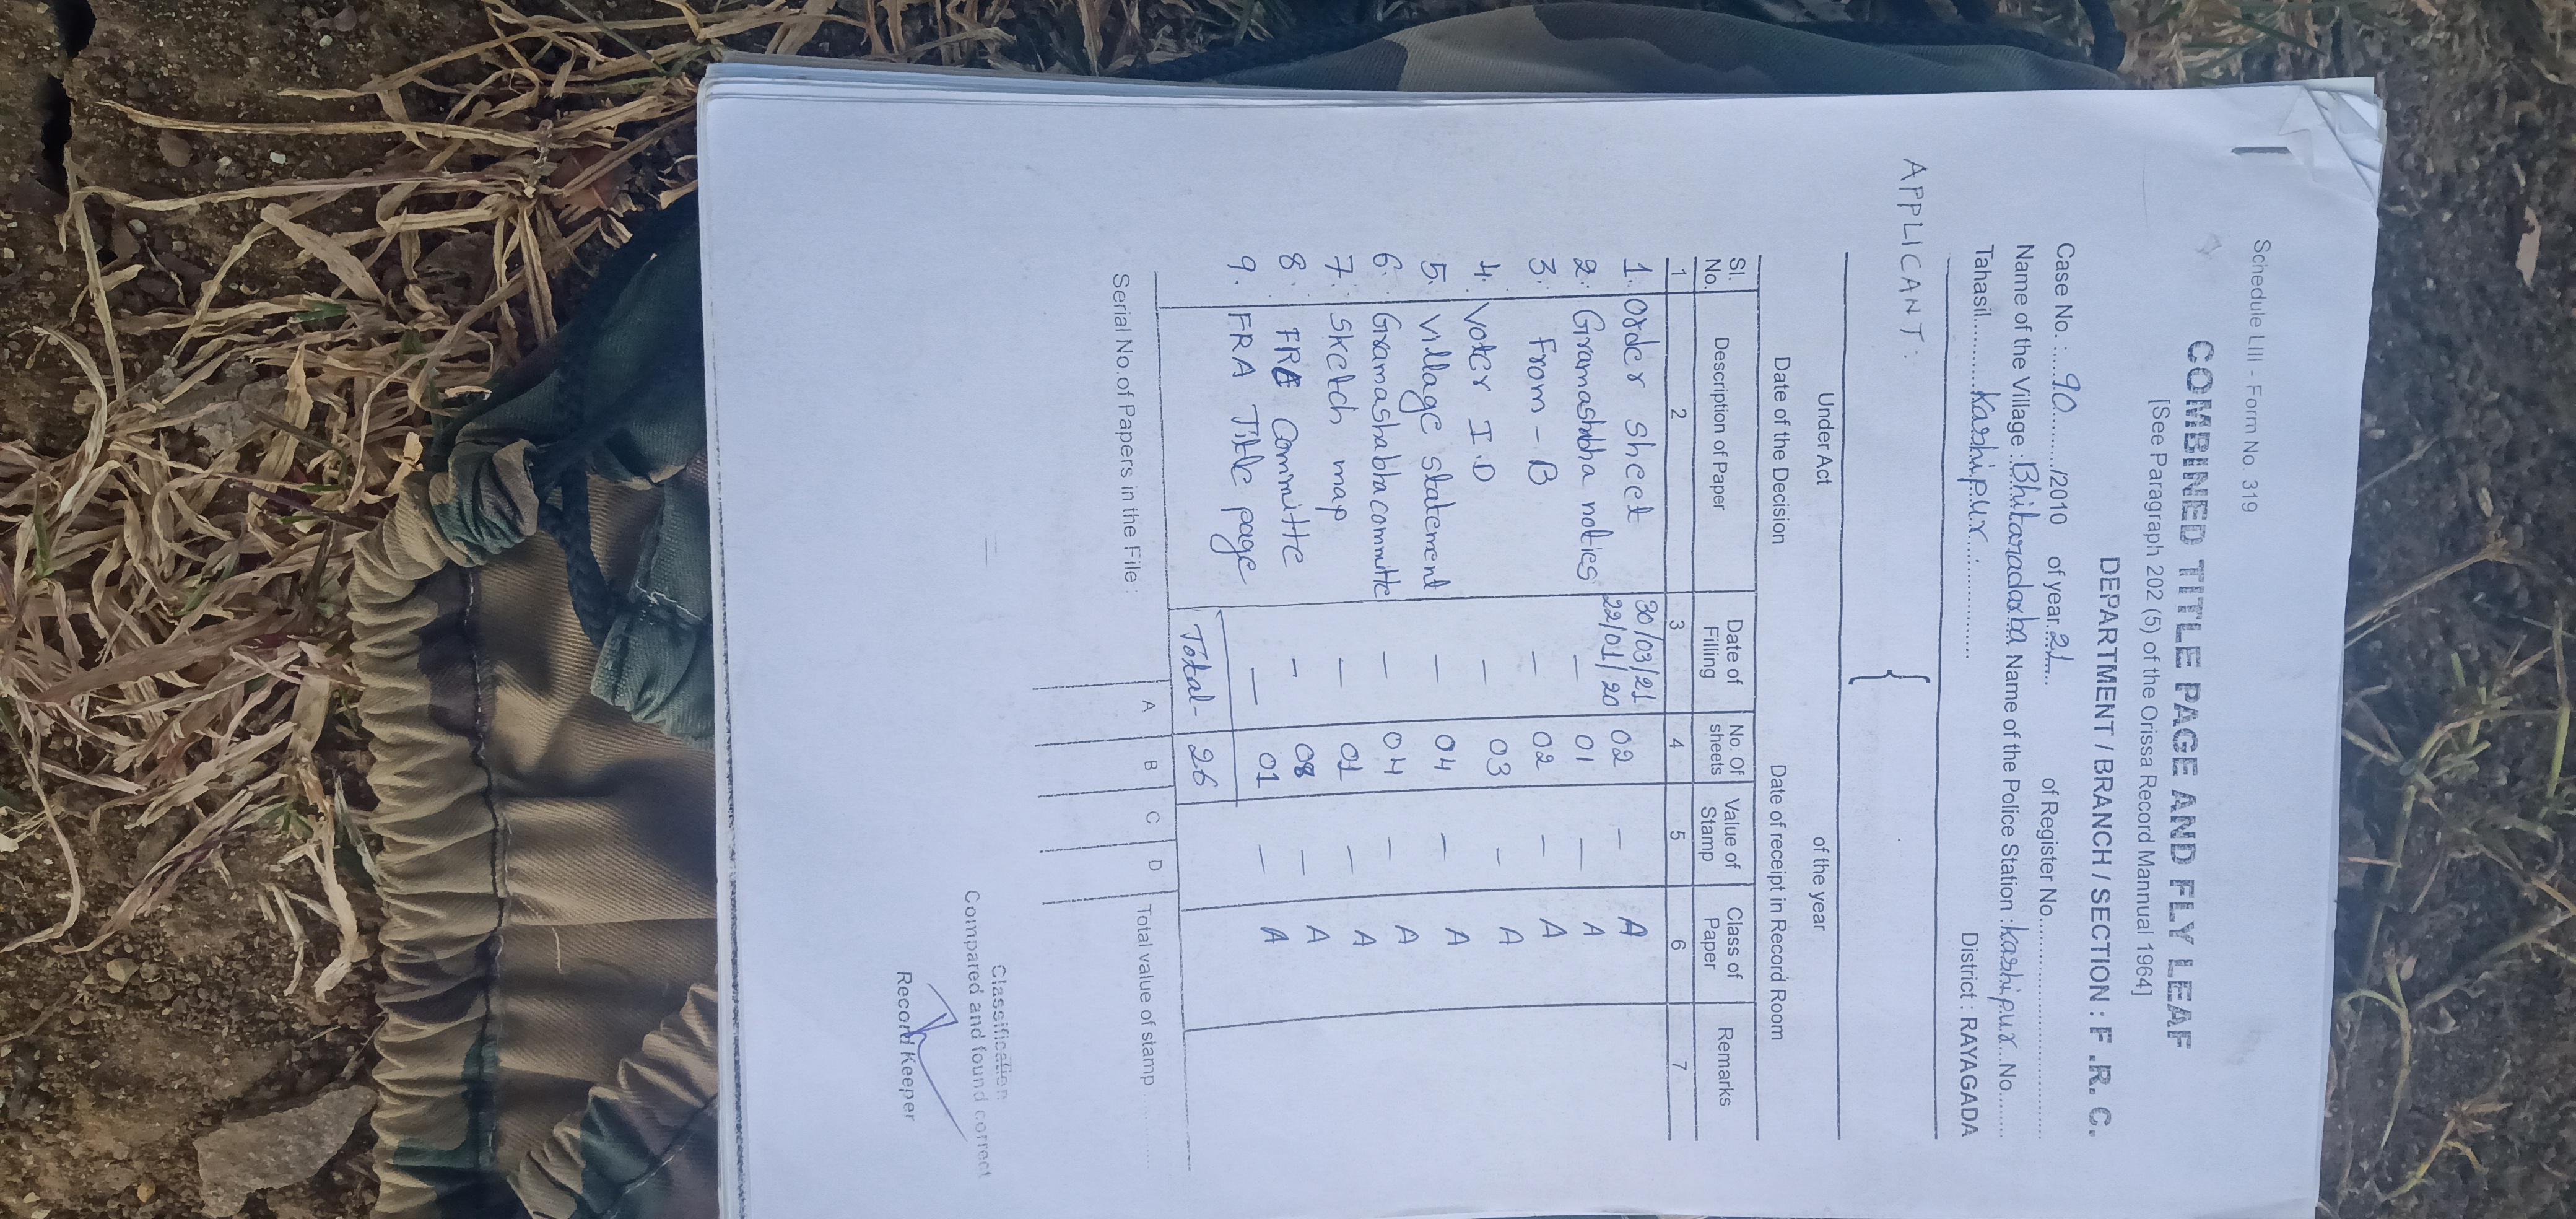 Schedule LIII - Form No. 319
COMBINED TITLE PAGE AND FLY LEAF
[See Paragraph 202 (5) of the Orissa Record Mannual 1964]
DEPARTMENT / BRANCH / SECTION : F.R.C.
Case No. :....90........../2010 of year..21.... of Register No..............................
Name of the Village : Bhitaradarba Name of the Police Station : Kashipur No.......
Tahasil..........Kashipur................. District : RAYAGADA
APPLICANT :
Under Act of the year
Date of the Decision Date of receipt in Record Room
Sl. No. Description of Paper Date of Filling No. Of sheets Value of Stamp Class of Paper Remarks
1 2 3 4 5 6 7
1. Order sheet 30/03/21 22/01/20 02 — A
2. Gramashbha notics — 01 — A
3. From - B — 02 — A
4. Voter I.D — 03 — A
5. Village statement — 04 — A
6. Gramashabha committe — 04 — A
7. Sketch map — 01 — A
8. FRC Committe — 08 — A
9. FRA Title page — 01 — A
Total - 26
Serial No. of Papers in the File : A B C D Total value of stamp
Classification
Compared and found correct
Record Keeper